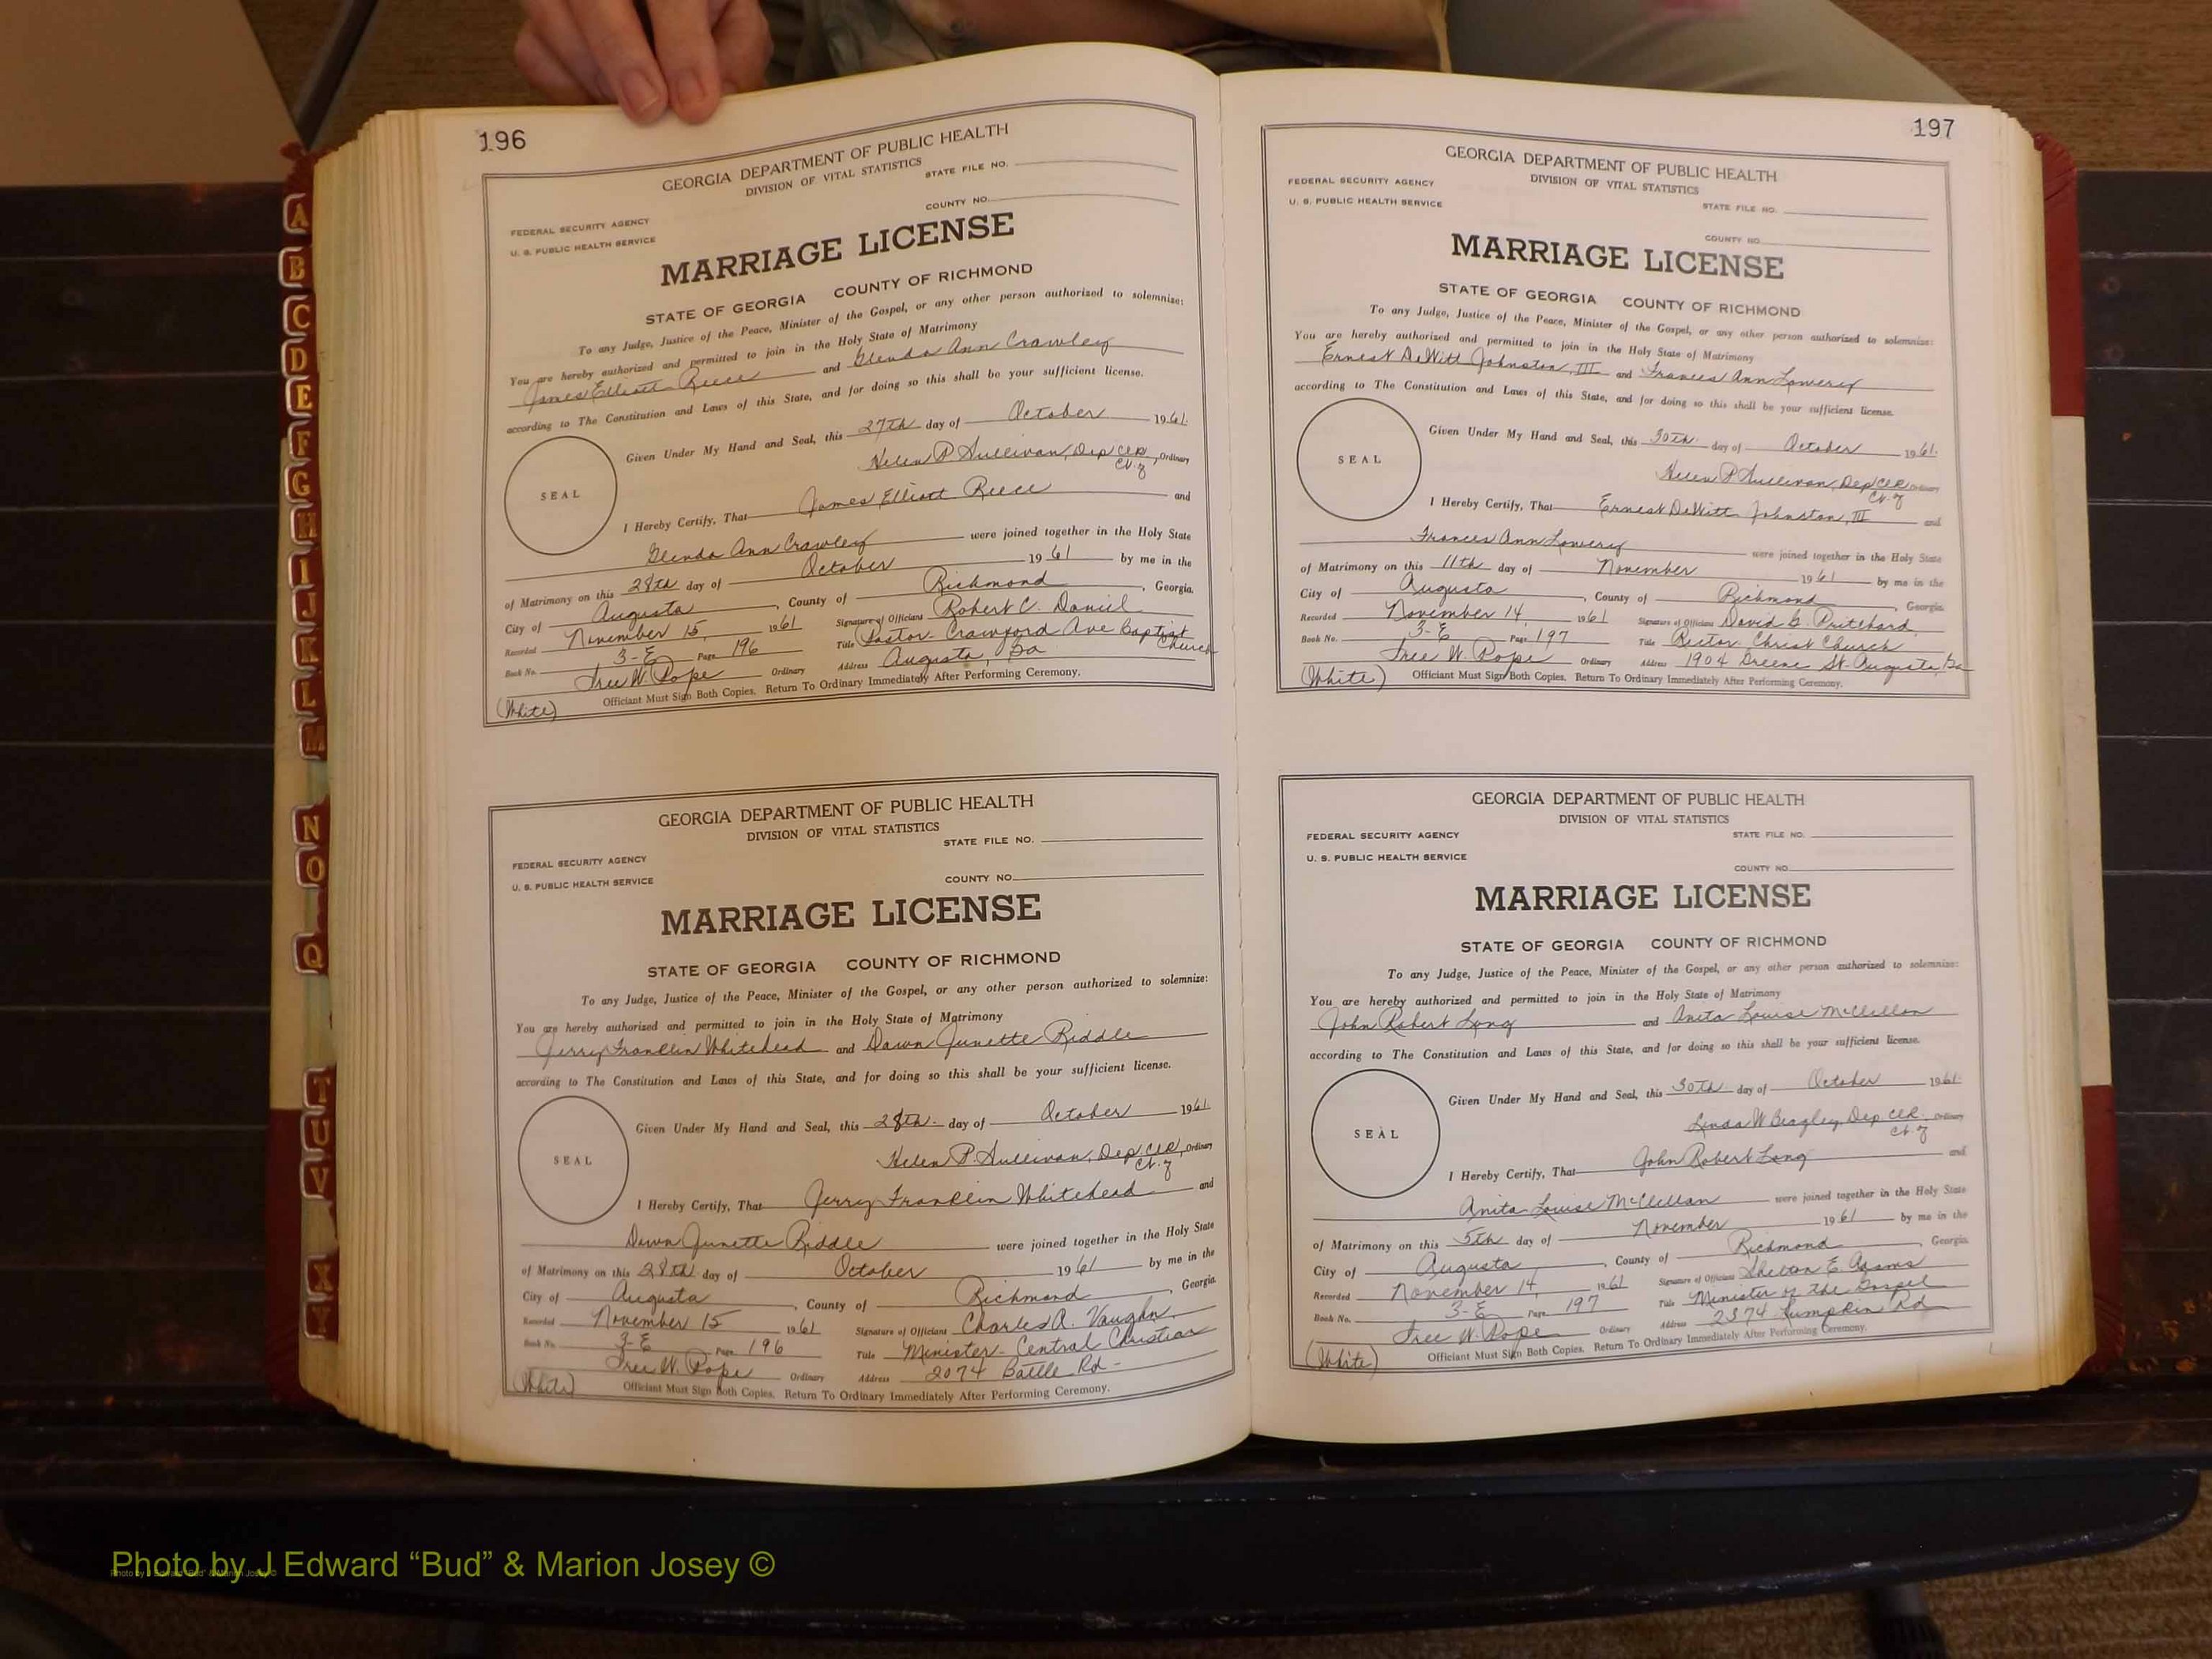 196
GEORGIA DEPARTMENT OF PUBLIC HEALTH
DIVISION OF VITAL STATISTICS
STATE FILE NO.
COUNTY NO.
FEDERAL SECURITY AGENCY
U. S. PUBLIC HEALTH SERVICE
MARRIAGE LICENSE
STATE OF GEORGIA COUNTY OF RICHMOND
To any Judge, Justice of the Peace, Minister of the Gospel, or any other person authorized to solemnize:
You are hereby authorized and permitted to join in the Holy State of Matrimony
James Elliott Reece and Glenda Ann Crawley
according to The Constitution and Laws of this State, and for doing so this shall be your sufficient license.
SEAL
Given Under My Hand and Seal, this 27th day of October 1961.
Helen P Sullivan, Dep Clk, Ordinary
Ct. of
I Hereby Certify, That James Elliott Reece and
Glenda Ann Crawley were joined together in the Holy State
of Matrimony on this 28th day of October 1961 by me in the
City of Augusta, County of Richmond, Georgia.
Recorded November 15, 1961 Signature of Officiant Robert C. Daniel
Book No. 3-E Page 196 Title Pastor- Crawford Ave Baptist Church
Tree W. Pope Ordinary Address Augusta, Ga
(White) Officiant Must Sign Both Copies. Return To Ordinary Immediately After Performing Ceremony.
GEORGIA DEPARTMENT OF PUBLIC HEALTH
DIVISION OF VITAL STATISTICS
STATE FILE NO.
FEDERAL SECURITY AGENCY
U. S. PUBLIC HEALTH SERVICE
COUNTY NO.
MARRIAGE LICENSE
STATE OF GEORGIA COUNTY OF RICHMOND
To any Judge, Justice of the Peace, Minister of the Gospel, or any other person authorized to solemnize:
You are hereby authorized and permitted to join in the Holy State of Matrimony
Jerry Franklin Whitehead and Dawn Junette Riddle
according to The Constitution and Laws of this State, and for doing so this shall be your sufficient license.
SEAL
Given Under My Hand and Seal, this 28th. day of October 1961
Helen P. Sullivan, Dep Clk, Ordinary
Ct. of
I Hereby Certify, That Jerry Franklin Whitehead and
Dawn Junette Riddle were joined together in the Holy State
of Matrimony on this 28th day of October 1961 by me in the
City of Augusta, County of Richmond, Georgia.
Recorded November 15 1961 Signature of Officiant Charles A. Vaughn
Book No. 3-E Page 196 Title Minister- Central Christian
Tree W. Pope Ordinary Address 2074 Battle Rd-
(White) Officiant Must Sign Both Copies. Return To Ordinary Immediately After Performing Ceremony.
197
GEORGIA DEPARTMENT OF PUBLIC HEALTH
DIVISION OF VITAL STATISTICS
FEDERAL SECURITY AGENCY
U. S. PUBLIC HEALTH SERVICE
STATE FILE NO.
COUNTY NO.
MARRIAGE LICENSE
STATE OF GEORGIA COUNTY OF RICHMOND
To any Judge, Justice of the Peace, Minister of the Gospel, or any other person authorized to solemnize:
You are hereby authorized and permitted to join in the Holy State of Matrimony
Ernest DeWitt Johnston, III and Frances Ann Lowery
according to The Constitution and Laws of this State, and for doing so this shall be your sufficient license.
SEAL
Given Under My Hand and Seal, this 30th. day of October 1961.
Helen P Sullivan, Dep Clk Ordinary
Ct. of
I Hereby Certify, That Ernest DeWitt Johnston, III and
Frances Ann Lowery were joined together in the Holy State
of Matrimony on this 11th day of November 1961 by me in the
City of Augusta, County of Richmond, Georgia.
Recorded November 14, 1961 Signature of Officiant David G. Pritchard
Book No. 3-E Page 197 Title Rector- Christ Church
Tree W. Pope Ordinary Address 1904 Greene St. Augusta, Ga
(White) Officiant Must Sign Both Copies. Return To Ordinary Immediately After Performing Ceremony.
GEORGIA DEPARTMENT OF PUBLIC HEALTH
DIVISION OF VITAL STATISTICS
FEDERAL SECURITY AGENCY
STATE FILE NO.
U. S. PUBLIC HEALTH SERVICE
COUNTY NO.
MARRIAGE LICENSE
STATE OF GEORGIA COUNTY OF RICHMOND
To any Judge, Justice of the Peace, Minister of the Gospel, or any other person authorized to solemnize:
You are hereby authorized and permitted to join in the Holy State of Matrimony
John Robert Long and Anita Louise McClellan
according to The Constitution and Laws of this State, and for doing so this shall be your sufficient license.
SEAL
Given Under My Hand and Seal, this 30th day of October 1961.
Linda W Beazley, Dep Clk. Ordinary
Ct. of
I Hereby Certify, That John Robert Long and
Anita Louise McClellan were joined together in the Holy State
of Matrimony on this 5th day of November 1961 by me in the
City of Augusta, County of Richmond, Georgia.
Recorded November 14, 1961 Signature of Officiant Shelton E. Adams
Book No. 3-E Page 197 Title Minister of the Gospel
Tree W. Pope Ordinary Address 2374 Lumpkin Rd
(White) Officiant Must Sign Both Copies. Return To Ordinary Immediately After Performing Ceremony.
A
B
C
D
E
F
G
H
I
J
K
L
M
N
O
Q
T
U
V
X
Y
Photo by J Edward “Bud” & Marion Josey ©
Photo by J Edward “Bud” & Marion Josey ©